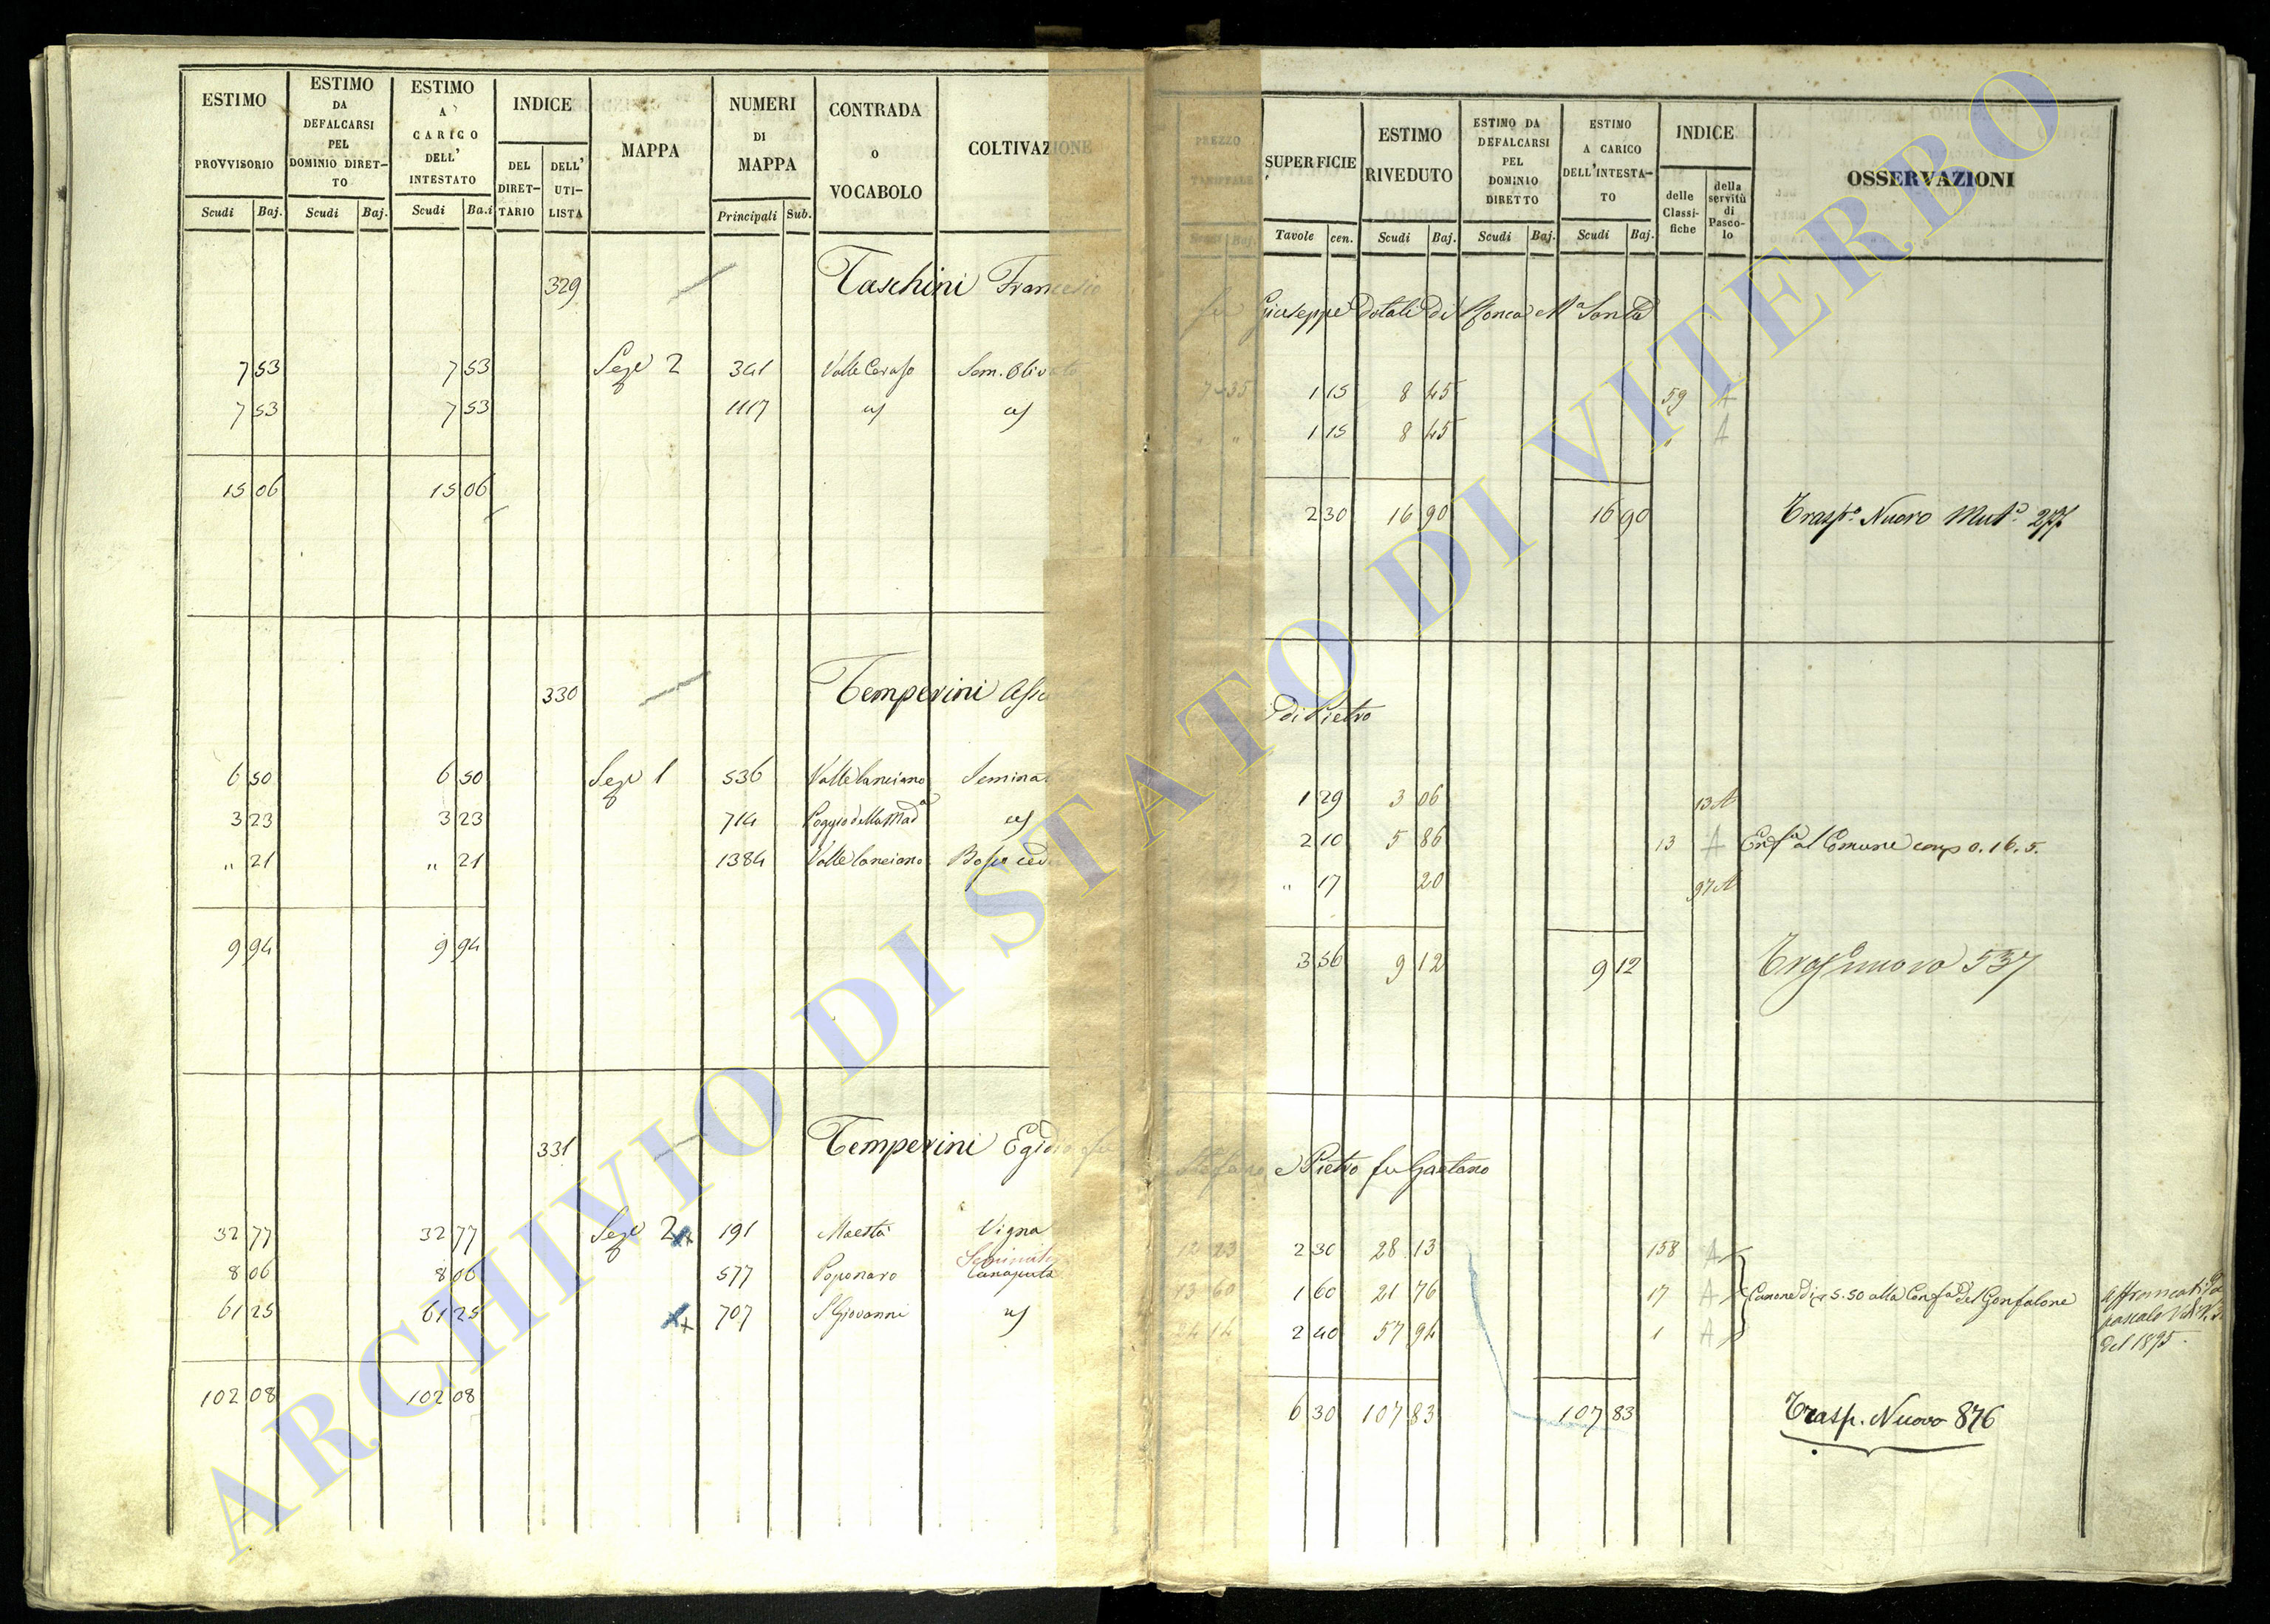 ESTIMO PROVVISORIO
ESTIMO DA DEFALCARSI PEL DOMINIO DIRET-TO
ESTIMO A CARICO DELL' INTESTATO
INDICE
DEL DIRET-TARIO
DELL' UTI-LISTA
MAPPA
NUMERI DI MAPPA
CONTRADA O VOCABOLO
COLTIVAZIONE
PREZZO
SUPERFICIE
ESTIMO RIVEDUTO
ESTIMO DA DEFALCARSI PEL DOMINIO DIRETTO
ESTIMO A CARICO DELL'INTESTA-TO
INDICE
delle Classi-fiche
della servitù di Pasco-lo
OSSERVAZIONI
Scudi Baj. Scudi Baj. Scudi Ba.i Principali Sub.
Scudi Baj. Tavole cen. Scudi Baj. Scudi Baj. Scudi Baj.
329 Taschini Francesco fu Giuseppe dotali di Ma Santa
7 53 7 53 Sez.e 2 341 Valle Caraso Sem. Olivato 7 35 1 15 8 45 59 A
7 53 7 53 1117 " " 1 15 8 45 " A
15 06 15 06 2 30 16 90 16 90 Trasp.o Nuovo Mut.o 277
330 Temperini di Pietro
6 50 6 50 Sez.e 1 536 Valle Canciano 1 29 3 06 13 A
3 23 3 23 714 Poggio della Mad.a 2 10 5 86 13 A al Comune corrisp 0.16.5.
" 21 " 21 1384 Valle Canciano Bosco " 17 20 97 A
9 94 9 94 3 56 9 12 9 12 Trasp.o nuovo 537
331 Temperini Egidio Stefano e Pietro fu Gaetano
32 77 32 77 Sez.e 2 191 Maestà Vigna 12 23 2 30 28 13 158 A
8 06 8 06 577 Poponaro Canaputo 13 60 1 60 21 76 17 A Canone di 5.50 alla Conf.a del Gonfalone
61 25 61 25 707 S. Giovanni 24 14 2 40 57 94 1 A
del 1895.
102 08 102 08 6 30 107 83 107 83 Trasp. Nuovo 876
ARCHIVIO DI STATO DI VITERBO